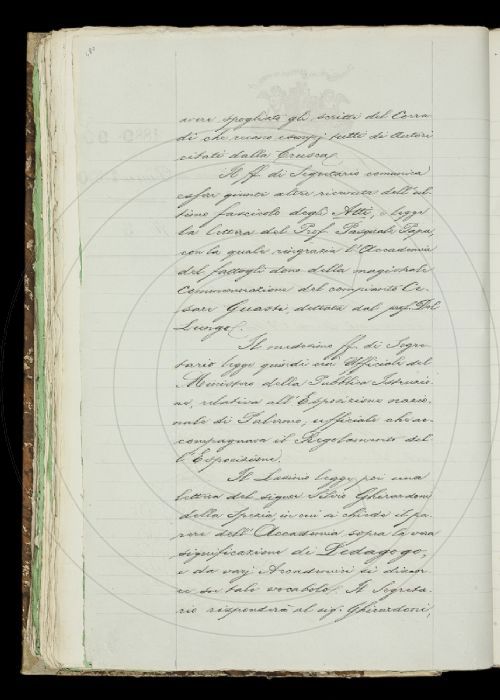 avere spogliati gli scritti del Cerra
di che erano esempj tutti di Autori
citati dalla Crusca.
Il ff. di Segretario comunica
esser giunte altre ricevute dell'ul-
timo fascicolo degli Atti, e legge
la lettera del Prof. Pasquale Papa,
con la quale ringrazia l'Accademia
del fattogli dono della magistrale
Commemorazione del compianto Ce-
sare Guasti, dettata dal prof. Del
Lungo.
Il medesimo ff. di Segre-
tario legge quindi una Officiale del
Ministero della Pubblica Istruzio-
ne, relativa all'Esposizione nazio-
nale di Palermo, officiale che ac-
compagnava il Regolamento del-
l'Esposizione.
Il legge poi una
lettera del signor Silvio Gherardoni
della Spezia in cui si chiede il pa-
rere dell'Accademia sopra la vera
significazione di Pedagogo,
e da varj Accademici si discor-
re su tale vocabolo. Il Segreta-
rio risponderà al sig. Gherardoni,